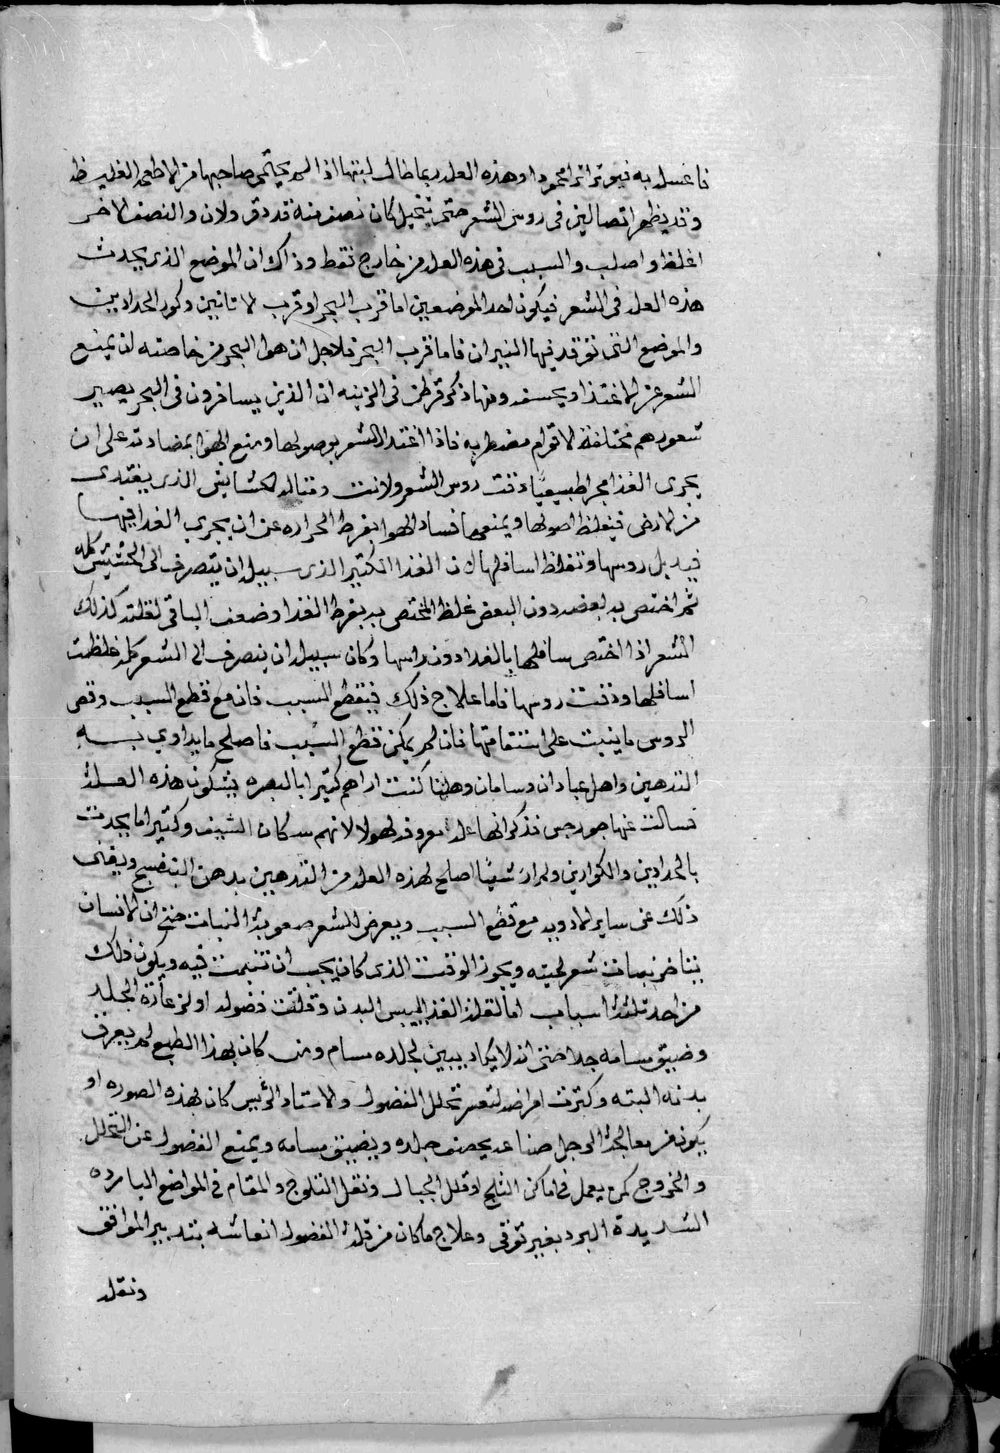 فاغسل به فيوثر اثرا محمودا وهذه العله ربما طال لبثها اذا لم يحتمى صاحبها من الاطعمه الغليظه
وقد يظهر اتصالين فى روس الشعر حتى يتخيل كان نصف منه قد دق ولان والنصف الاخر
اغلظ واصلب والسبب فى هذه العله من خارج فقط وذاك ان الموضع الذى يحدث
هذه العله فى الشعر فيكون احد الموضعين اما قرب البحر او قرب الاتاتين وكور الحدادين
والموضع التى توقد فيها النيران فاما قرب البحر فلاجل ان هوا البحر من خاصته ان يمنع
الشعر عن الاغتذا ويحسفه ومنها ذكر قرطن فى الزينه ان الذين يسافرون فى البحر يصير
شعورهم مختلفة الاقوام مضطربه فاذا اغتذا الشعر بوصولها ومنع الهوا بمضادته على ان
يجرى الغذا مجرا طبيعيا دقت روس الشعر ولانت ومثاله الحشايش الذى يغتذى
من الارض فيغلظ اصولها ويمنعها فساد الهوا بفرط الحراره عن ان يجرى الغذا فيها
فيذبل روسها وتغلظ اسافلها لان الغذا الكثير الذى سبيله ان يتصرف الى الحشيش كله
ثم اختص به بعضه دون البعض غلظ المختص به بفرط الغذا وضعف الباقى لقلته كذلك
الشعر اذا اختص سافلها بالغذا دون راسها وكان سبيله ان ينصرف الى الشعر كله غلظت
اسافلها ودقت روسها فاما علاج ذلك فيقطع السبب فان مع قطع السبب وقص
الروس ما ينبت على استقامتها فان لم يمكن قطع السبب فاصلح ما يداوي به
التدهين واهل عبادان وسامان وهلتا كنت اراهم كثيرا بالبصره يشكون هذه العله
فسالت عنها جورجس فذكر انها عله معروفه لهولا لانهم سكان الشيف وكثيرا ما يحدث
بالحدادين والكوارين ولم ار شيئا اصلح لهذه العله من التدهين بدهن البنفسج ويغنى
ذلك عن ساير الادويه مع قطع السبب ويعرض للشعر صعوبة النبات حتى ان الانسان
يتاخر نبات شعر لحيته ويجوز الوقت الذى كان يجب ان تنبت فيه ويكون ذلك
من احد ثلثة اسباب اما لقلة الغذا ليبس البدن وقلة فضوله او لرعازة الجلد
وضيق مسامه جدا حتى انه لا يكاد يبين لجلده مسام ومن كان بهذا الطبع لم يعرق
بدنه البته وكثرت امراضه لتعسر تحلل الفضول والاستاد الرئيس كان بهذه الصوره او
يكون من معالجة الرجل صناعه يحصف جلده ويضيق مسامه ويمنع الفضول عن التحلل
والخروج كمن يعمل فى اماكن الثلج او قلل الجبال ونقل الثلوج والمقام فى المواضع البارده
الشديدة البرد بغير توقى وعلاج ما كان من قلة الفضول انعاشه بتدبير الموافق
ونقله